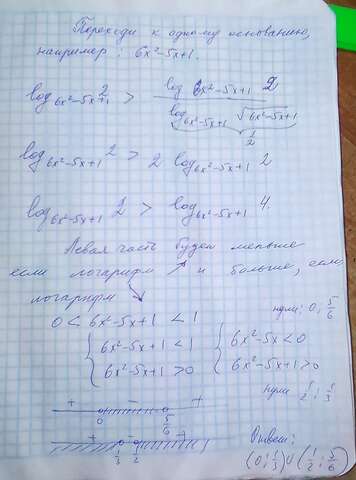 Переходи к одному основанию,
например: 6x²-5x+1.
log_{6x²-5x+1} 2 > log_{6x²-5x+1} 2 / log_{6x²-5x+1} √(6x²-5x+1)
1/2
log_{6x²-5x+1} 2 > 2 log_{6x²-5x+1} 2
log_{6x²-5x+1} 2 > log_{6x²-5x+1} 4.
Левая часть будет меньше
если логарифм ↗ и больше, если
логарифм ↘
нули: 0; 5/6
0 < 6x²-5x+1 < 1
{ 6x²-5x+1 < 1 { 6x²-5x < 0
{ 6x²-5x+1 > 0 { 6x²-5x+1 > 0
нули 1/2; 1/3
+ - +
0 5/6
+ - +
1/3 1/2
Ответ:
(0; 1/3) ∪ (1/2; 5/6)